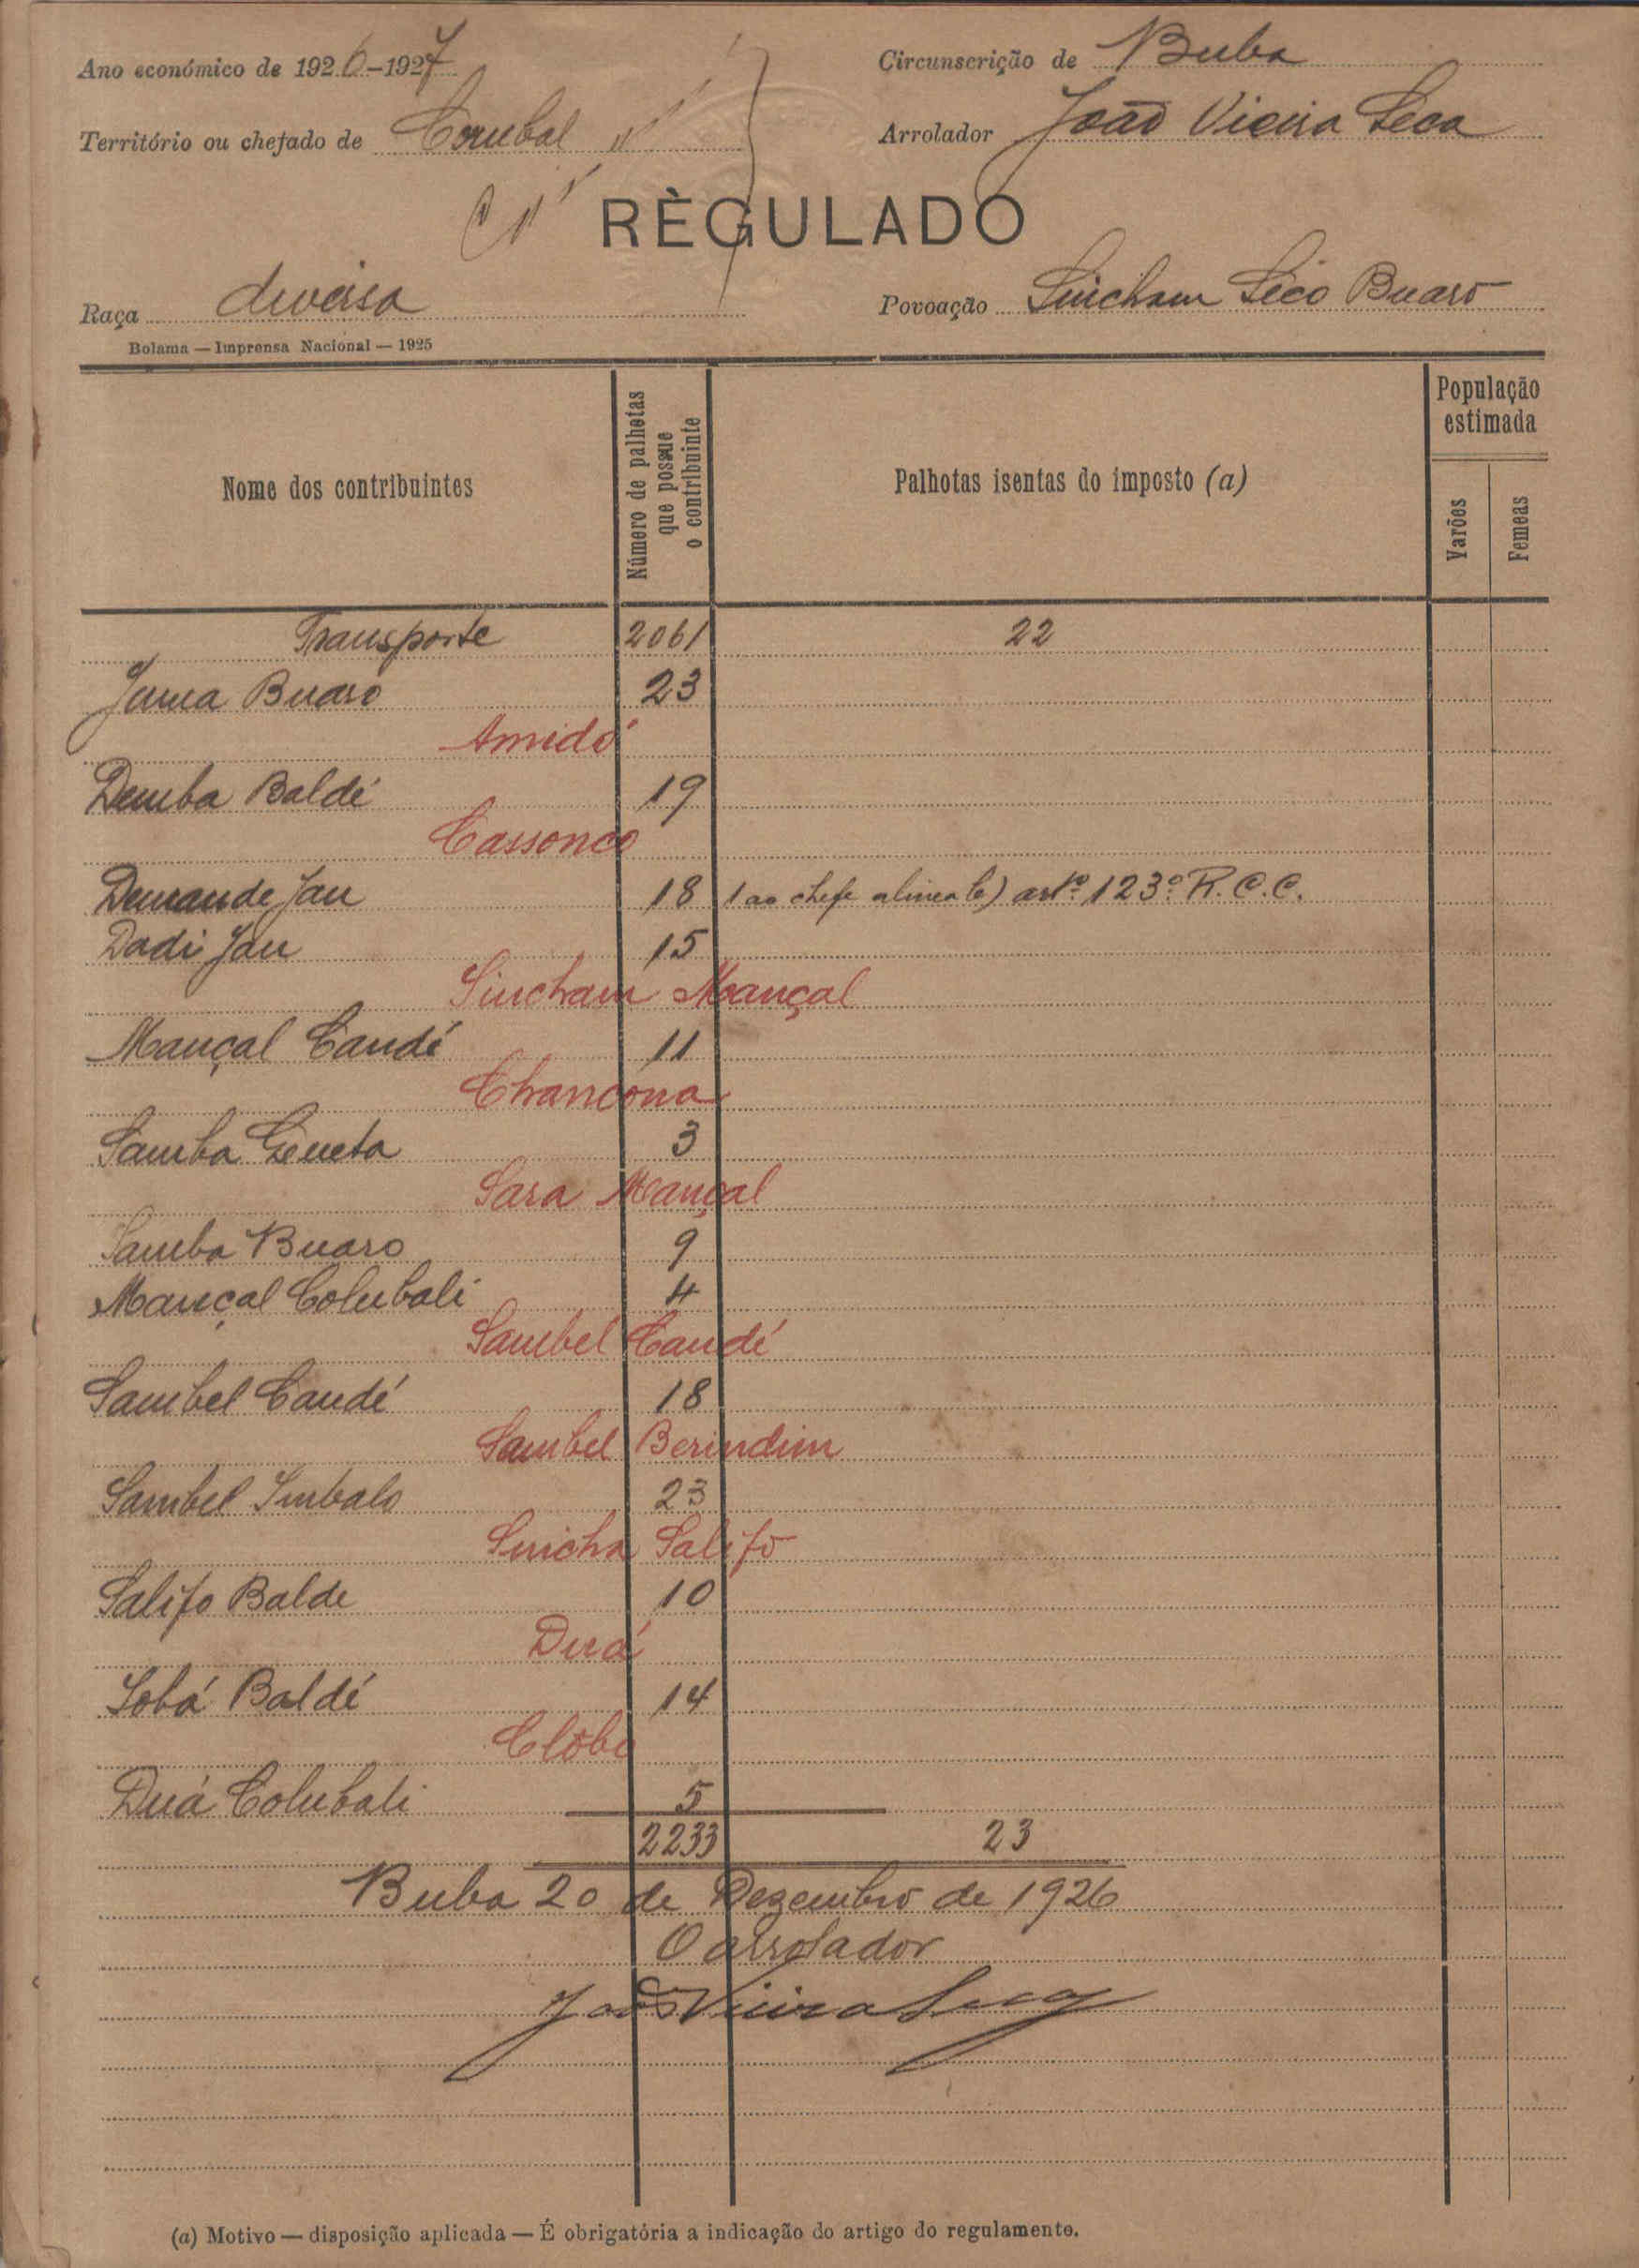 Ano económico de 1926-1927
Circunscrição de Buba
Território ou chefado de Corubal
Arrolador João Vieira Seca
RÈGULADO
Raça diversa
Povoação Sincham Séco Buaro
Bolama — Imprensa Nacional — 1925
Nome dos contribuintes
Número de palhotas que possue o contribuinte
Palhotas isentas do imposto (a)
População estimada
Varões
Femeas
Transporte 2061 22
Buaro 23
Amidó
Demba Baldé 19
Cassonco
Demande Jau 18 1 ao chefe alinea b) artº 123º R.C.C.
Dadi Jau 15
Sincham Mançal
Mançal Candé 11
Chancona
Samba Geneta 3
Sara Mançal
Samba Buaro 9
Mançal Colubali 4
Sambel Candé
Sambel Candé 18
Sambel Berindim
Sambel Imbalo 23
Sincha Salifo
Salifo Balde 10
Duá
Sobá Baldé 14
Clobe
Duá Colubali 5
2233 23
Buba 20 de Dezembro de 1926
O arrolador
João Vieira Seca
(a) Motivo — disposição aplicada — É obrigatória a indicação do artigo do regulamento.